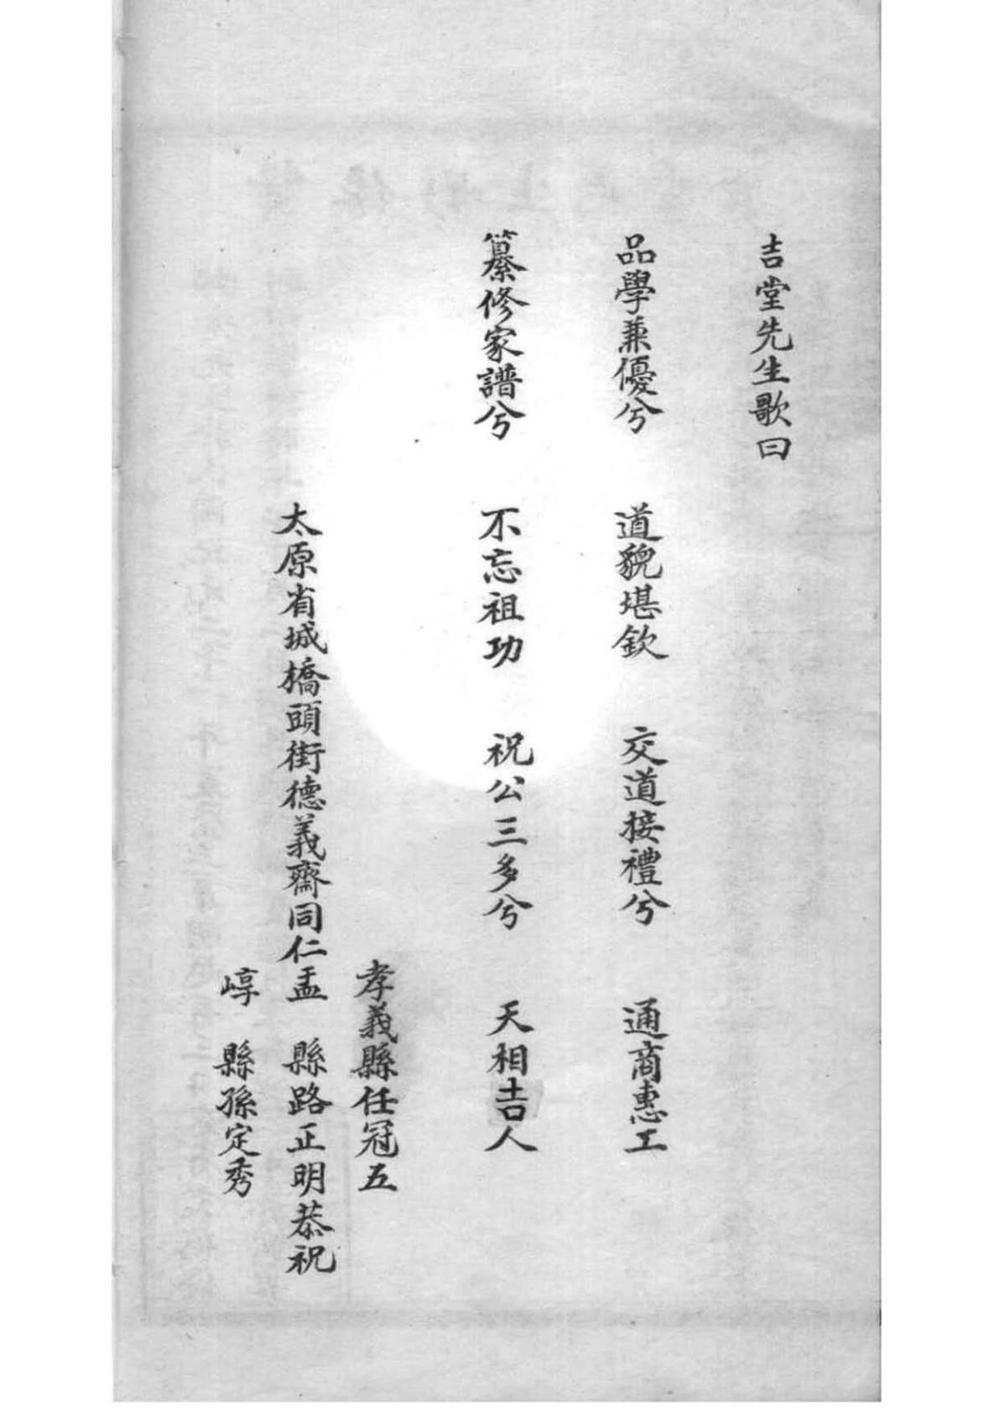 吉堂先生歌曰
品學兼優兮 道貌堪欽 交道接禮兮 通商惠工
纂修家譜兮 不忘祖功 祝公三多兮 天相吉人
孝義縣任冠五
太原省城橋頭街德義齋同仁盂 縣路正明恭祝
崞 縣孫定秀